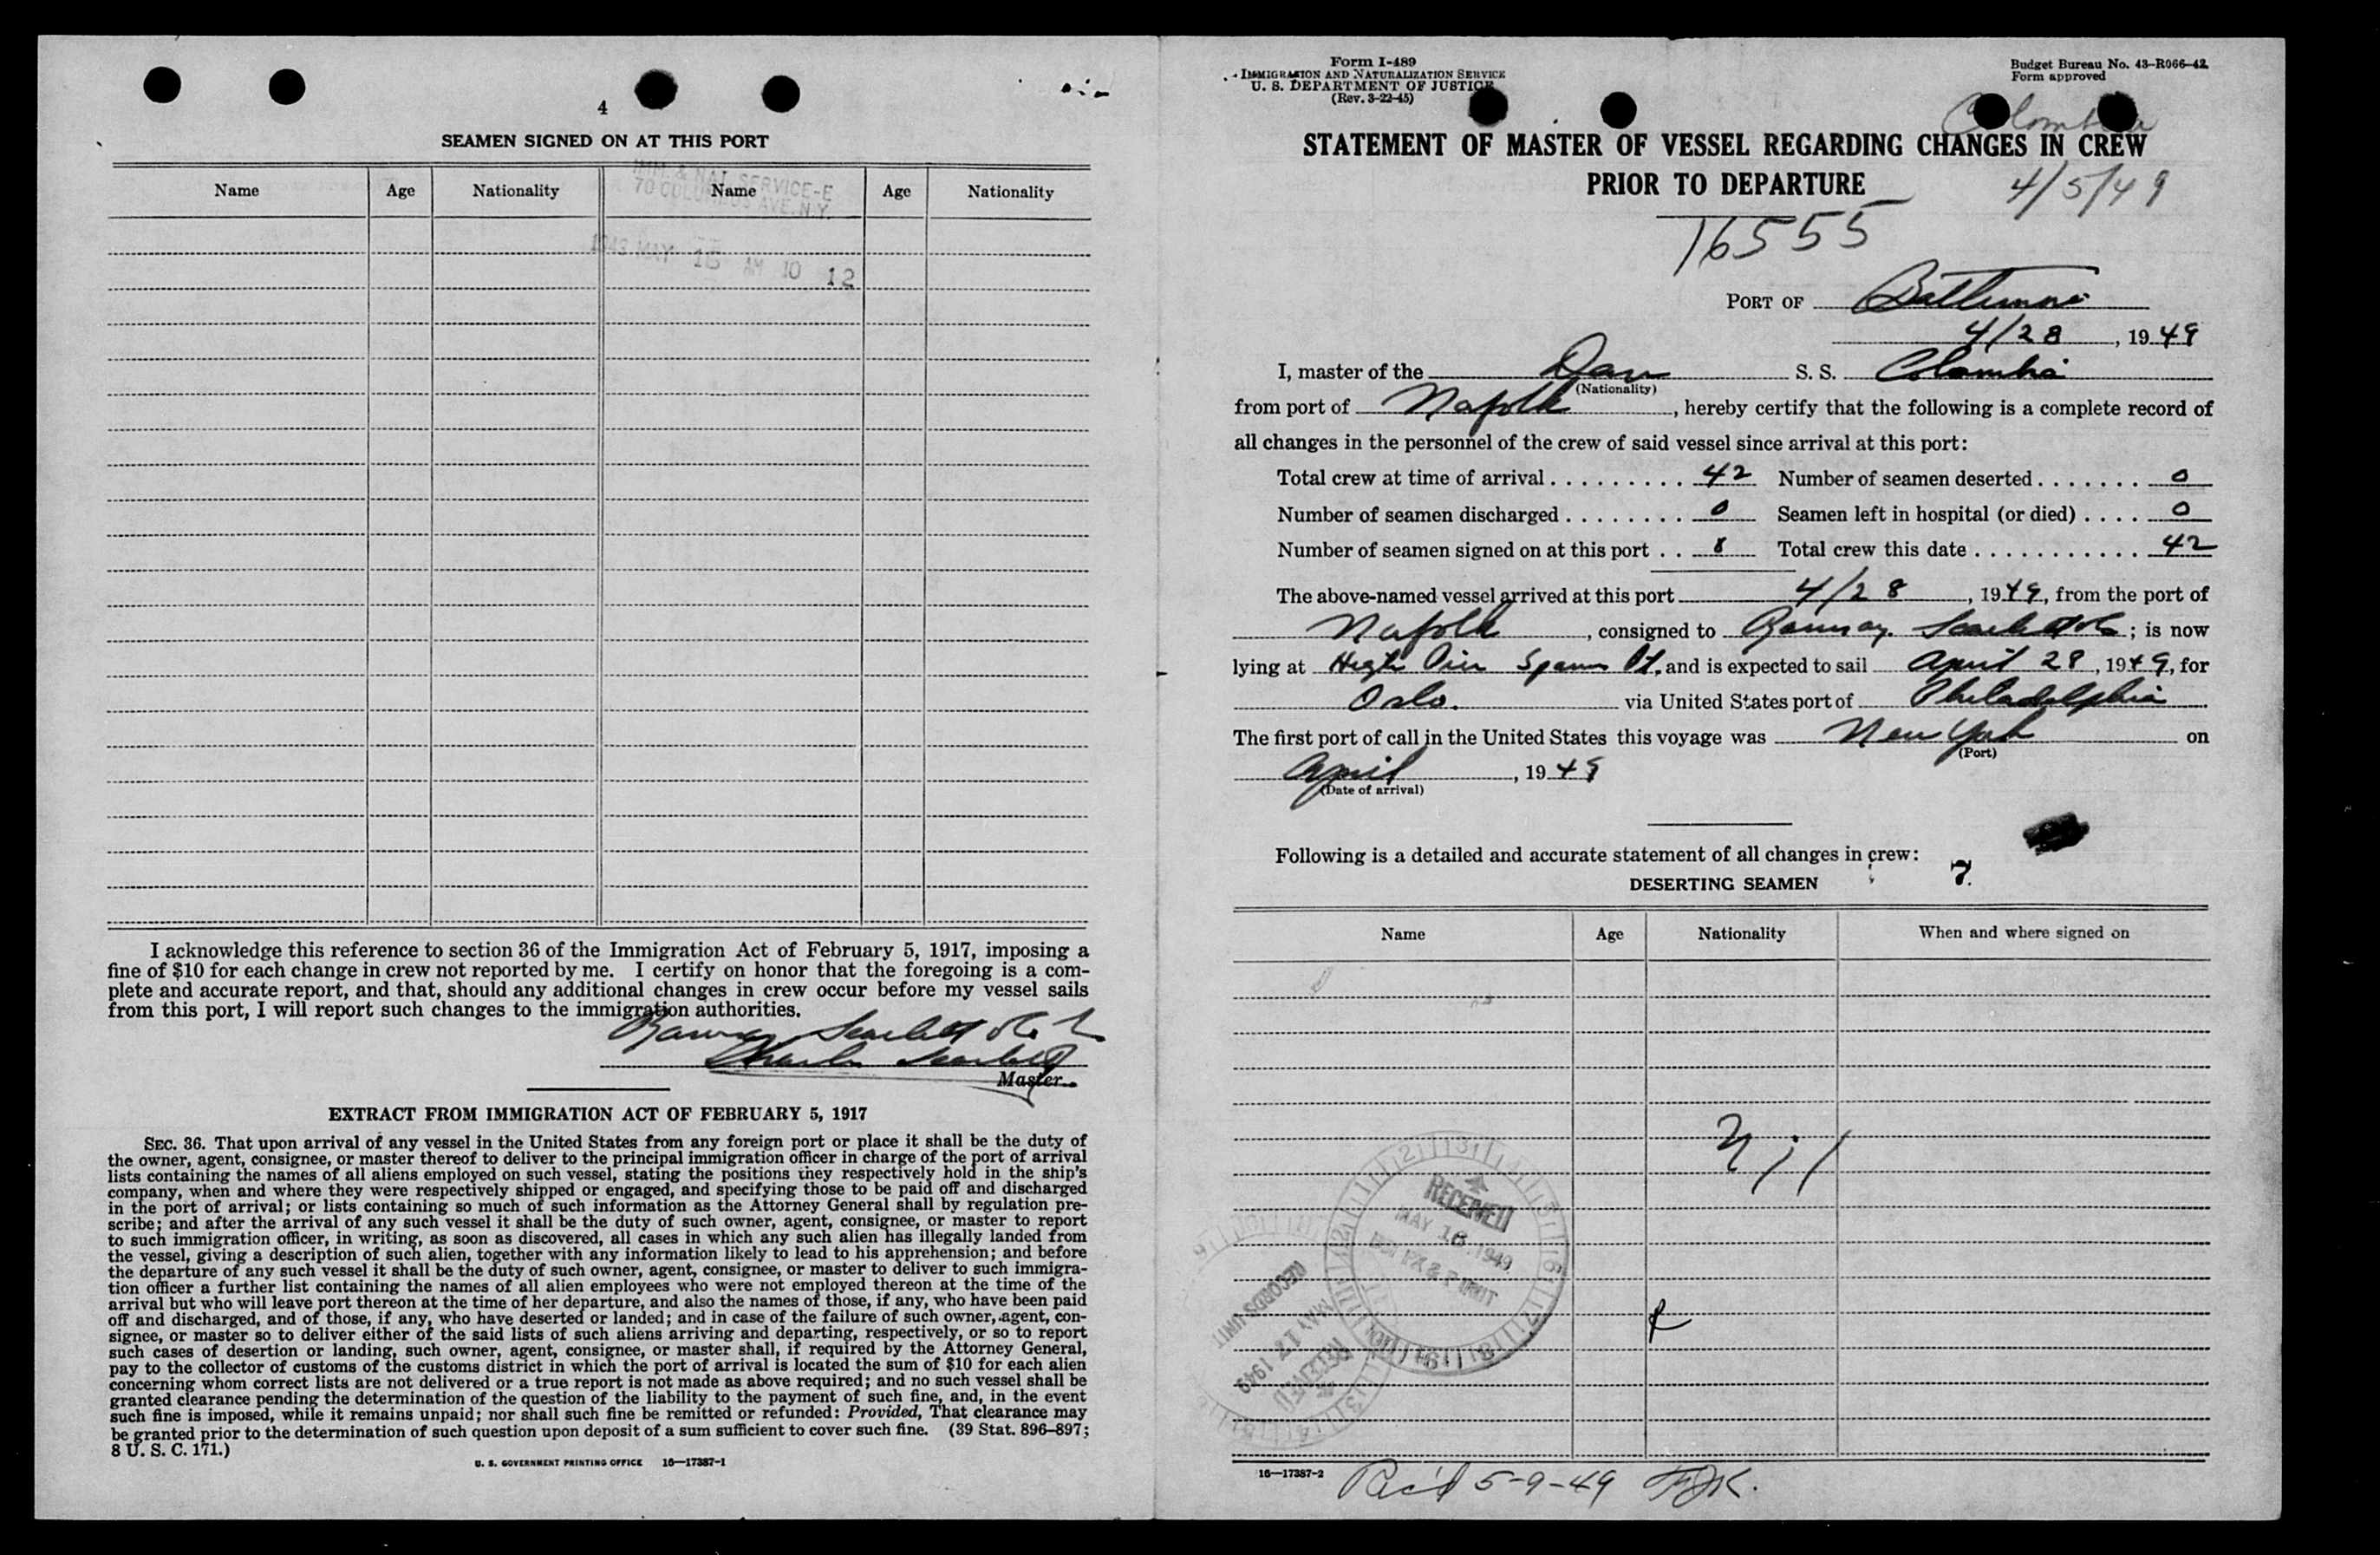 4
SEAMEN SIGNED ON AT THIS PORT
IMM. & NAT. SERVICE-E
70 COLUMBUS AVE. N.Y.
Name Age Nationality Name Age Nationality
MAY 16 AM 10 12
I acknowledge this reference to section 36 of the Immigration Act of February 5, 1917, imposing a
fine of $10 for each change in crew not reported by me. I certify on honor that the foregoing is a com-
plete and accurate report, and that, should any additional changes in crew occur before my vessel sails
from this port, I will report such changes to the immigration authorities.
Ramsay Scarlett & Co
Charles Scarlett
Master.
EXTRACT FROM IMMIGRATION ACT OF FEBRUARY 5, 1917
SEC. 36. That upon arrival of any vessel in the United States from any foreign port or place it shall be the duty of
the owner, agent, consignee, or master thereof to deliver to the principal immigration officer in charge of the port of arrival
lists containing the names of all aliens employed on such vessel, stating the positions they respectively hold in the ship's
company, when and where they were respectively shipped or engaged, and specifying those to be paid off and discharged
in the port of arrival; or lists containing so much of such information as the Attorney General shall by regulation pre-
scribe; and after the arrival of any such vessel it shall be the duty of such owner, agent, consignee, or master to report
to such immigration officer, in writing, as soon as discovered, all cases in which any such alien has illegally landed from
the vessel, giving a description of such alien, together with any information likely to lead to his apprehension; and before
the departure of any such vessel it shall be the duty of such owner, agent, consignee, or master to deliver to such immigra-
tion officer a further list containing the names of all alien employees who were not employed thereon at the time of the
arrival but who will leave port thereon at the time of her departure, and also the names of those, if any, who have been paid
off and discharged, and of those, if any, who have deserted or landed; and in case of the failure of such owner, agent, con-
signee, or master so to deliver either of the said lists of such aliens arriving and departing, respectively, or so to report
such cases of desertion or landing, such owner, agent, consignee, or master shall, if required by the Attorney General,
pay to the collector of customs of the customs district in which the port of arrival is located the sum of $10 for each alien
concerning whom correct lists are not delivered or a true report is not made as above required; and no such vessel shall be
granted clearance pending the determination of the question of the liability to the payment of such fine, and, in the event
such fine is imposed, while it remains unpaid; nor shall such fine be remitted or refunded: Provided, That clearance may
be granted prior to the determination of such question upon deposit of a sum sufficient to cover such fine. (39 Stat. 896-897;
8 U. S. C. 171.)
U. S. GOVERNMENT PRINTING OFFICE 16—17387-1
Form I-489
IMMIGRATION AND NATURALIZATION SERVICE
U. S. DEPARTMENT OF JUSTICE
(Rev. 3-22-45)
Budget Bureau No. 43-R066-42
Form approved
Colombia
STATEMENT OF MASTER OF VESSEL REGARDING CHANGES IN CREW
PRIOR TO DEPARTURE
4/5/49
16555
PORT OF Baltimore
4/28, 1949
I, master of the Dan S. S. Colombia
(Nationality)
from port of Nafolk, hereby certify that the following is a complete record of
all changes in the personnel of the crew of said vessel since arrival at this port:
Total crew at time of arrival . . . . . . . . . 42 Number of seamen deserted . . . . . . . 0
Number of seamen discharged . . . . . . . . 0 Seamen left in hospital (or died) . . . . 0
Number of seamen signed on at this port . . Total crew this date . . . . . . . . . . . 42
The above-named vessel arrived at this port 4/28, 1949, from the port of
Nafolk, consigned to Ramsay Scarlett & Co; is now
lying at High Pier Sparrows Pt. and is expected to sail April 28, 1949, for
Oslo. via United States port of Philadelphia
The first port of call in the United States this voyage was New York on
(Port)
April, 1949
(Date of arrival)
Following is a detailed and accurate statement of all changes in crew:
DESERTING SEAMEN 7.
Name Age Nationality When and where signed on
Nil
RECEIVED
MAY 16 1949
RECORDS UNIT
MAY 17 1949
RECEIVED
16—17387-2
Rec'd 5-9-49 FJK.